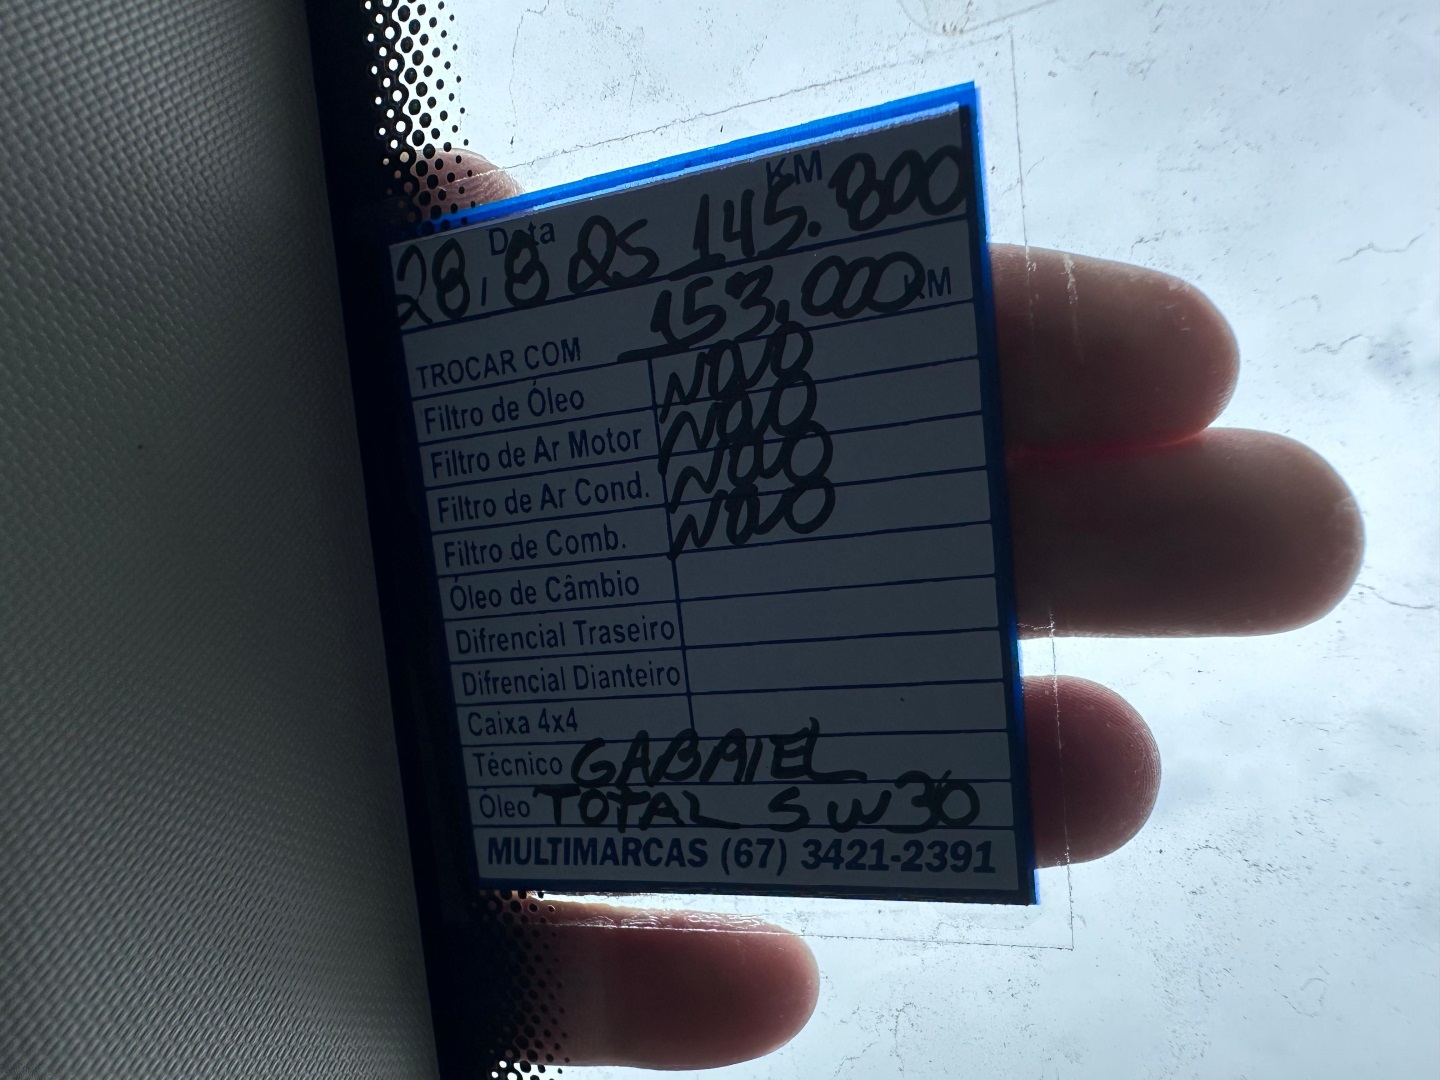 Data KM
28,8 25 145.800
TROCAR COM 153,000 KM
Filtro de Óleo NOVO
Filtro de Ar Motor NOVO
Filtro de Ar Cond. NOVO
Filtro de Comb. NOVO
Óleo de Câmbio
Difrencial Traseiro
Difrencial Dianteiro
Caixa 4x4
Técnico GABRIEL
Óleo TOTAL 5W30
MULTIMARCAS (67) 3421-2391